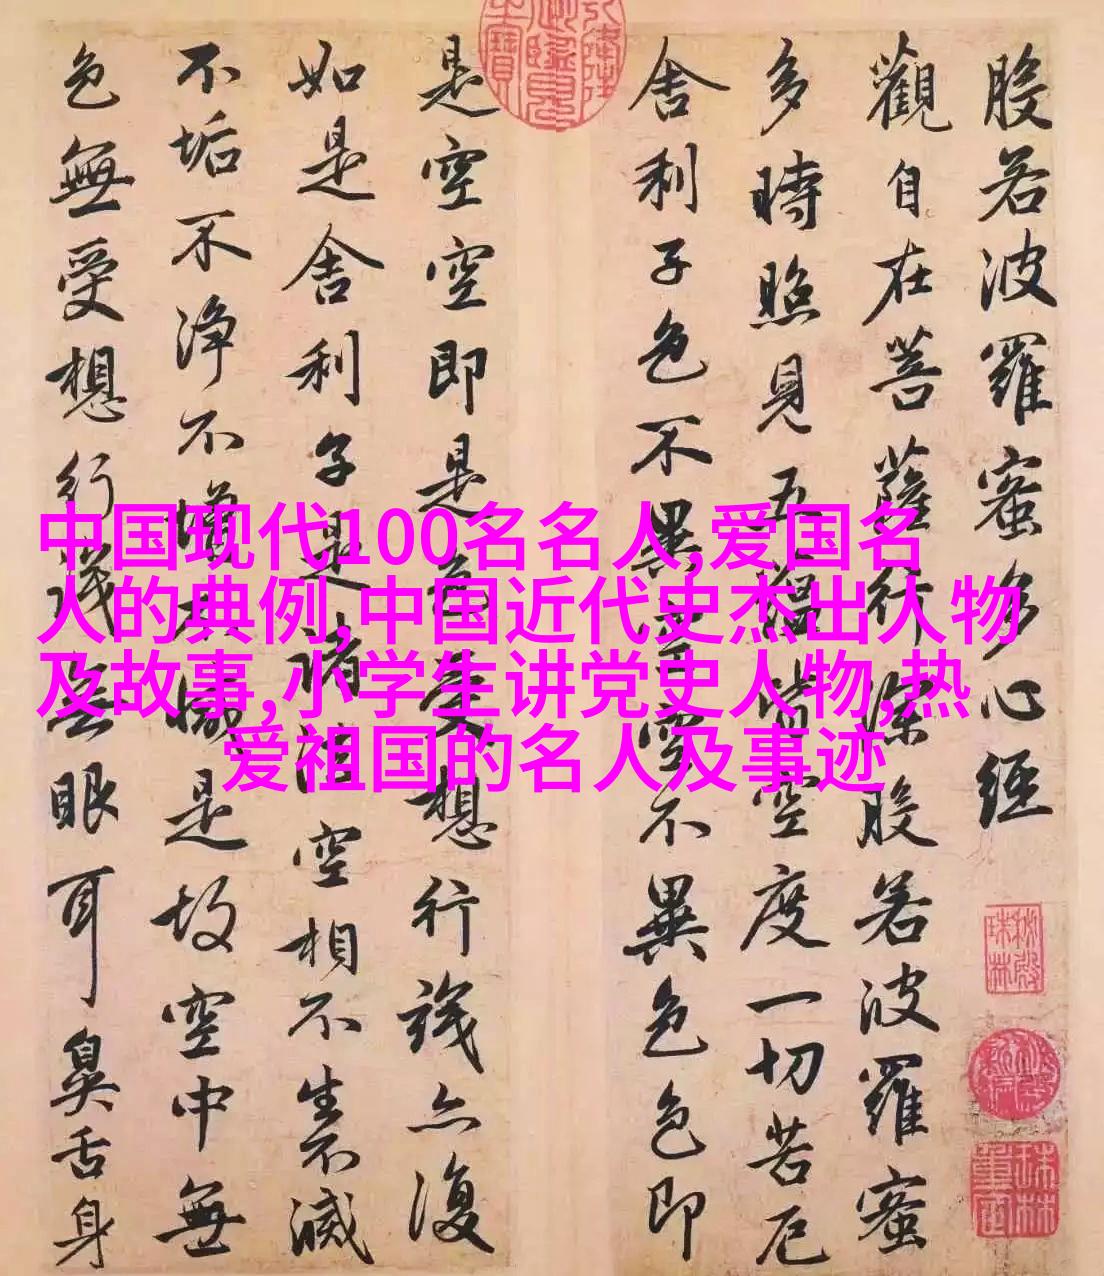 般若波羅蜜多心經
觀自在菩薩行深般若波羅蜜
多時照見五蘊皆空度一切苦厄
舍利子色不異空空不異色色即
是空空即是色受想行識亦復
如是舍利子是諸法空相不生不滅
不垢不淨不增不減是故空中無
色無受想行識無眼耳鼻舌身
中国现代100名名人,爱国名
人的典例,中国近代史杰出人物
及故事,小学生讲党史人物,热
爱祖国的名人及事迹
秘殿珠林